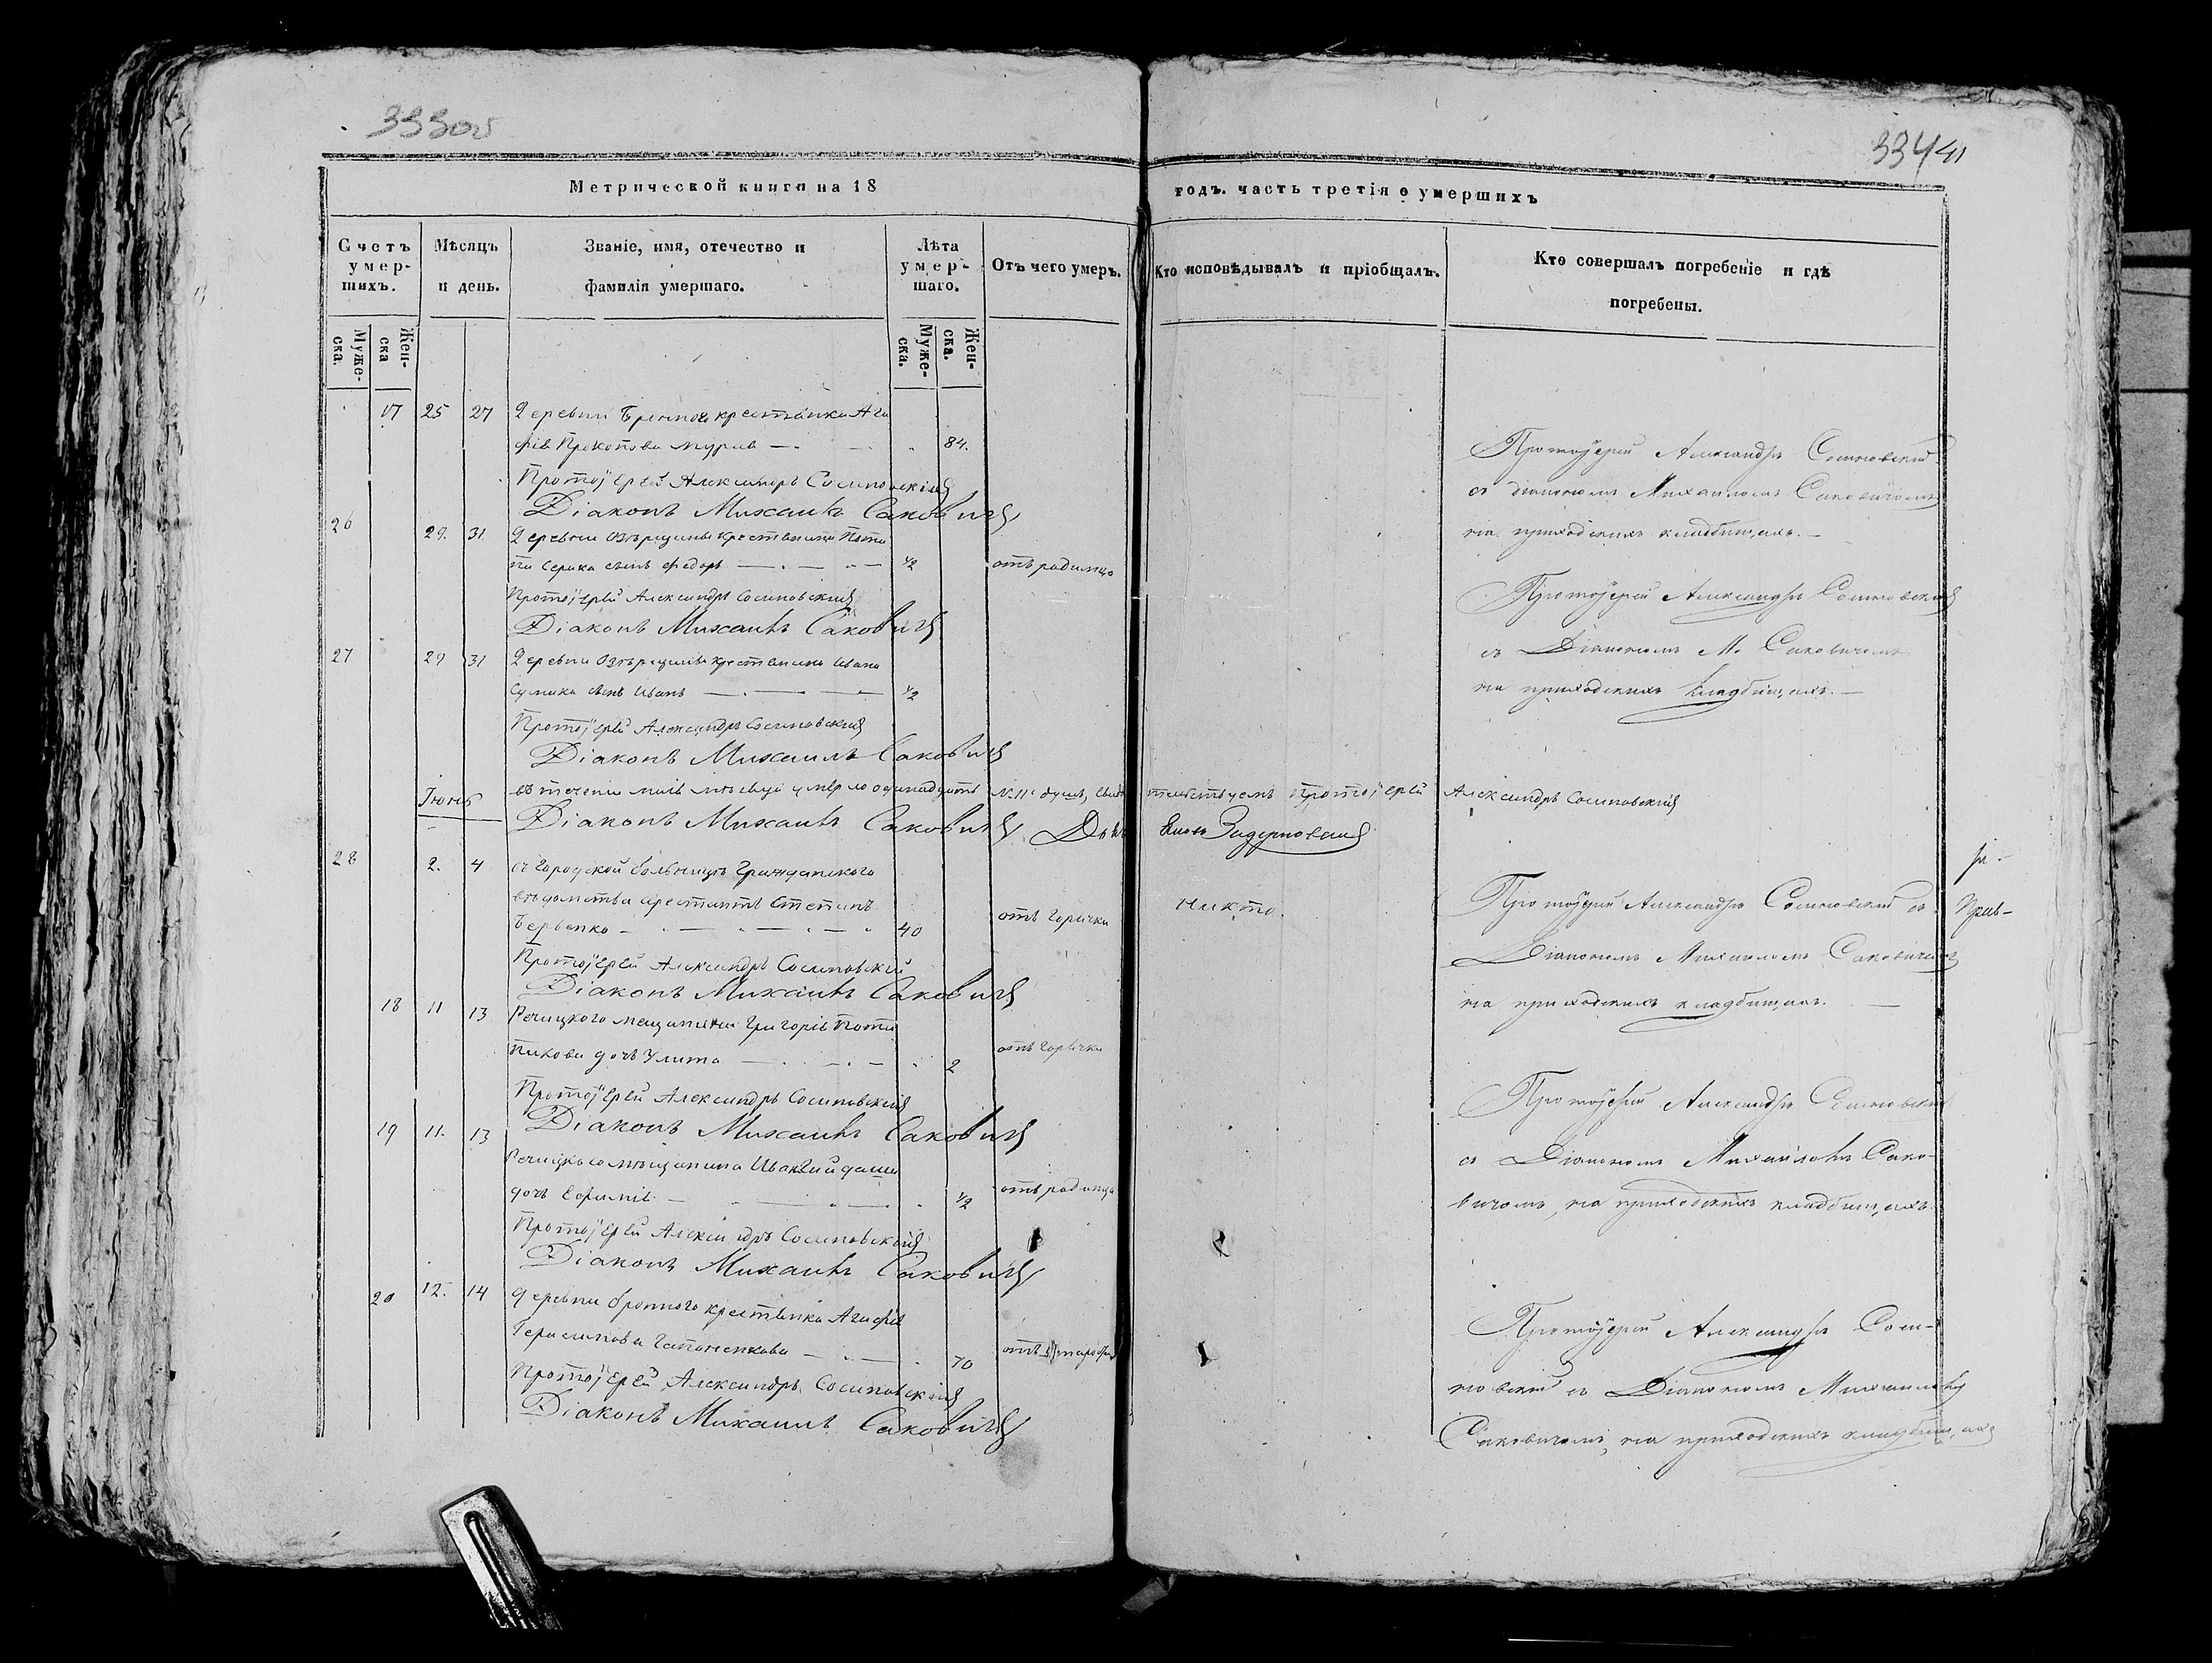 333об
334 41
Метрической книги на 18 годъ. часть третія о умершихъ
Счетъ умер-шихъ.
Мѣсяцъ и день.
Званіе, имя, отечество и фамилія умершаго.
Лѣта умер-шаго.
Отъ чего умеръ.
Кто исповѣдывалъ и пріобщалъ.
Кто совершалъ погребеніе и гдѣ погребены.
Муже-ска.
Жен-ска
Муже-ска.
Жен-ска.
17 25 27 Деревни Бронного крестьянка Ага
фія Прокопова 84.
Протоіерей Александръ Сосиновскій
Діаконъ Михаилъ Саковичъ
Протоіерей Александръ Сосиновскій
съ діакономъ Михаиломъ Саковичемъ
на приходскихъ кладбищахъ.
26 29. 31 Деревни Озерщины крестьянина
сынъ Федоръ 1/2 отъ родимца
Протоіерей Александръ Сосиновскій
Діаконъ Михаилъ Саковичъ
Протоіерей Александръ Сосиновскій
съ Діакономъ М. Саковичемъ
на приходскихъ кладбищахъ.
27 29 31 Деревни Озерщины крестьянина Ивана
сынъ Иванъ 1/2
Протоіерей Александръ Сосиновскій
Діаконъ Михаилъ Саковичъ
въ теченіи мая мѣсяца умерло одинадцать № 11 душъ, свидѣтельствуемъ Протоіерей Александръ Сосиновскій
Діаконъ Михаилъ Саковичъ
Іюнь
28 2. 4 въ городской больницѣ Гражданского
вѣдомства арестантъ Степанъ
40 отъ горячки никто.
Протоіерей Александръ Сосиновскій
Діаконъ Михаилъ Саковичъ
Протоіерей Александръ Сосиновскій съ
Діакономъ Михаиломъ Саковичемъ
на приходскихъ кладбищахъ.
18 11 13 Речицкого мещанина Григорія
дочь Улита 2 отъ горячки
Протоіерей Александръ Сосиновскій
Діаконъ Михаилъ Саковичъ
Протоіерей Александръ Сосиновскій
съ Діакономъ Михаиломъ Сако-
вичемъ, на приходскихъ кладбищахъ.
19 11. 13 Речицкого мѣщанина
дочь Евфимія 1/2 отъ родимца
Протоіерей Александръ Сосиновскій
Діаконъ Михаилъ Саковичъ
20 12. 14 деревни бронного крестьянка Агафія
Герасимова Гапоненкова 70 отъ старости
Протоіерей Александръ Сосиновскій
Діаконъ Михаилъ Саковичъ
Протоіерей Александръ Соси-
новскій съ Діакономъ Михаиломъ
Саковичемъ, на приходскихъ кладбищахъ